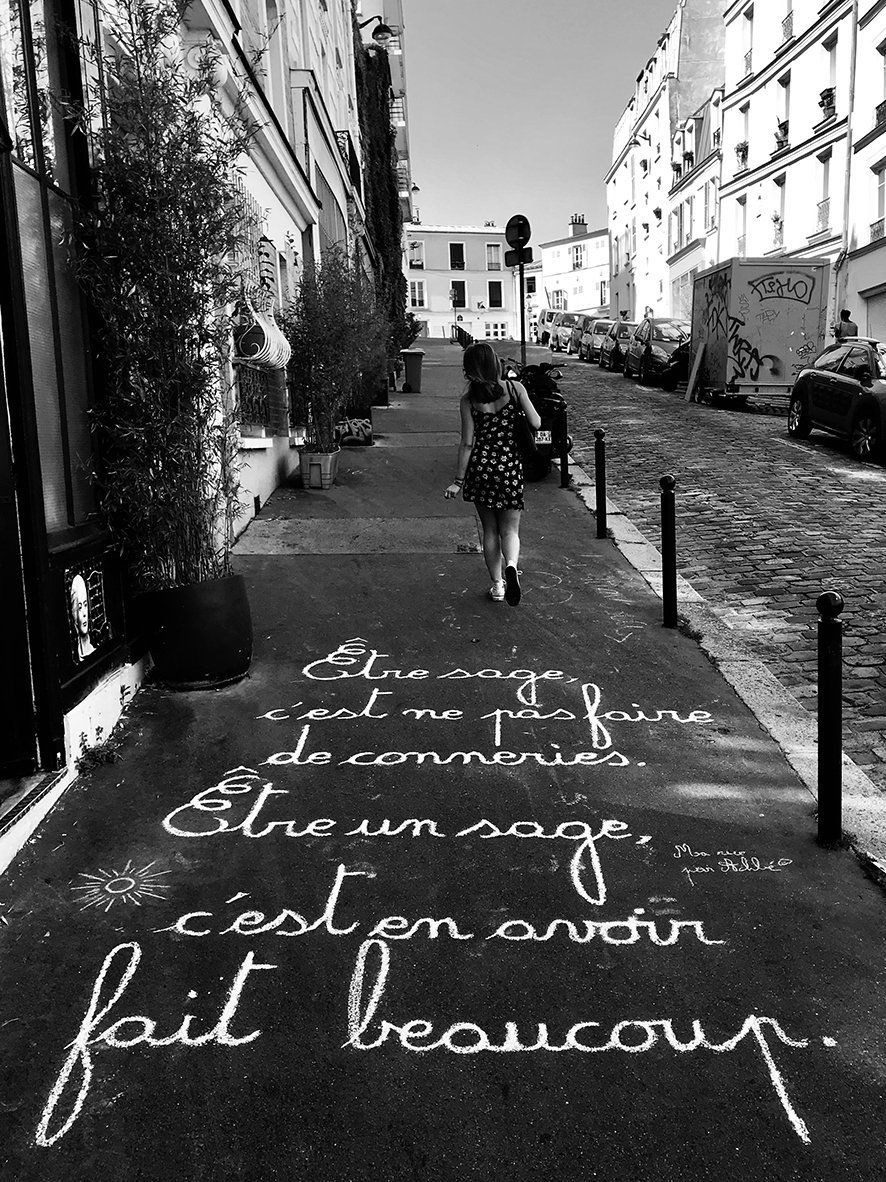 Être sage,
c'est ne pas faire
de conneries.
Être un sage,
c'est en avoir
fait beaucoup.
par